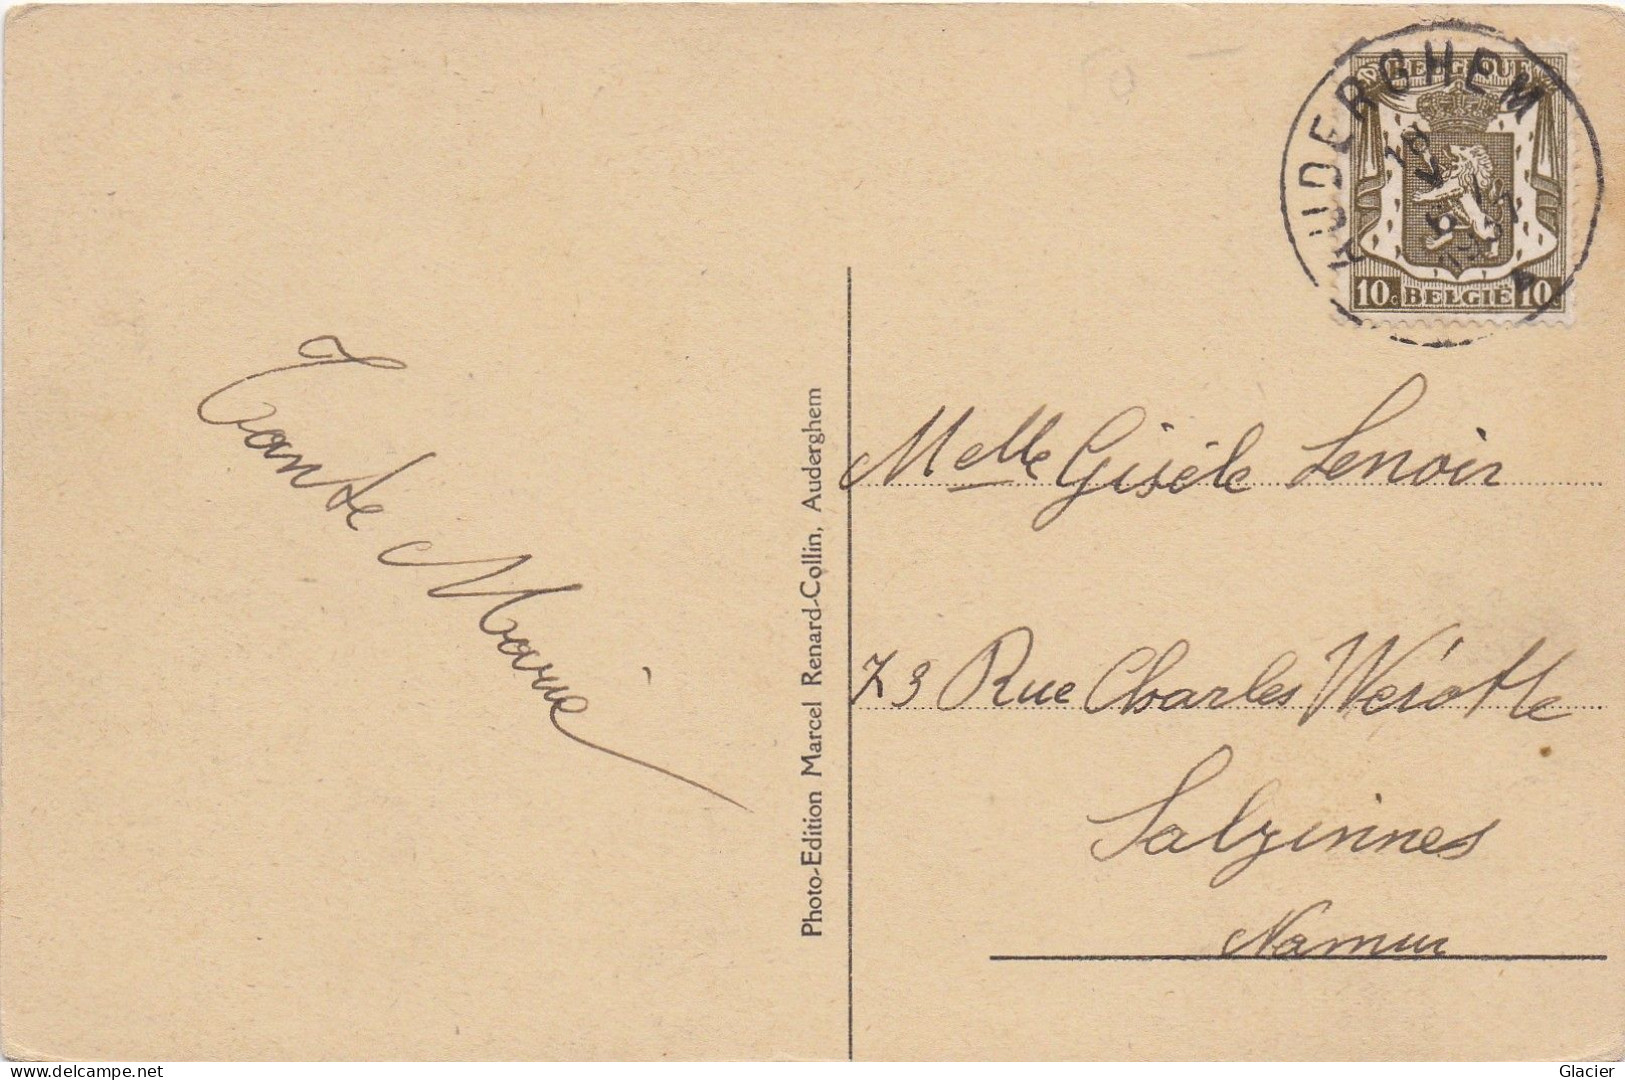 AUDERGHEM
BELGIQUE
1937
10c BELGIË 10c
Tante Marie
Photo-Edition Marcel Renard-Collin, Auderghem
Melle Gisèle Lenoir
73 Rue Charles Wérotte
Salzinnes
Namur
delcampe.net
Glacier